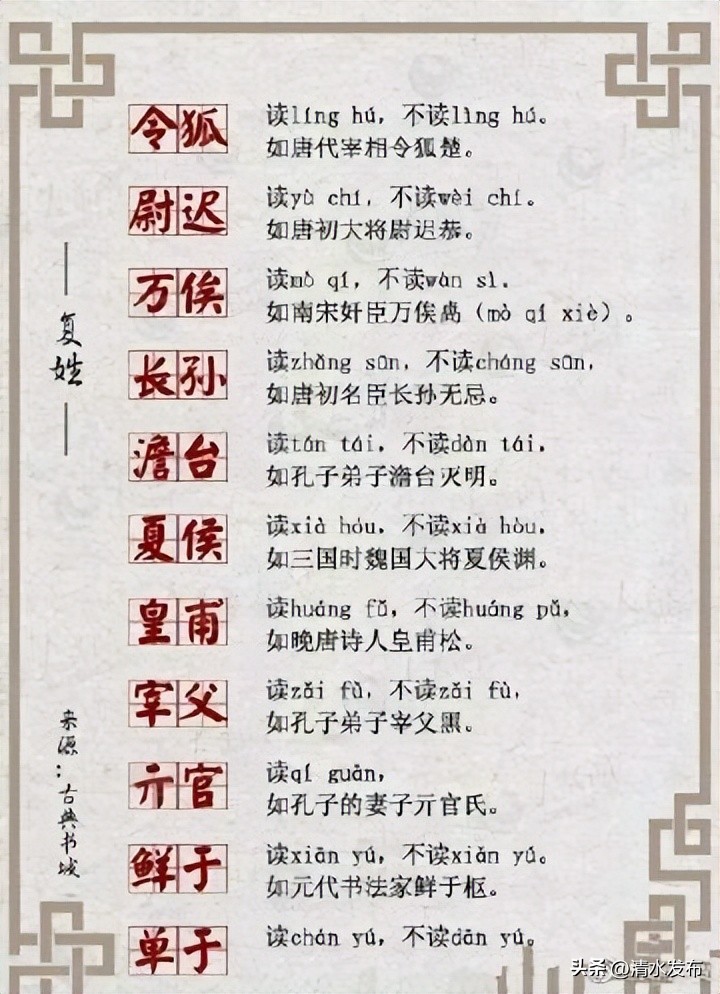 复姓
令狐
读líng hú，不读lìng hú。
如唐代宰相令狐楚。
尉迟
读yù chí，不读wèi chí。
如唐初大将尉迟恭。
万俟
读mò qí，不读wàn sì.
如南宋奸臣万俟卨（mò qí xiè）。
长孙
读zhǎng sūn，不读cháng sūn,
如唐初名臣长孙无忌。
澹台
读tán tái，不读dàn tái.
如孔子弟子澹台灭明。
夏侯
读xià hóu，不读xià hòu.
如三国时魏国大将夏侯渊。
皇甫
读huáng fǔ，不读huáng pǔ,
如晚唐诗人皇甫松。
宰父
读zǎi fǔ，不读zǎi fù,
如孔子弟子宰父黑。
亓官
读qí guān,
如孔子的妻子亓官氏。
鲜于
读xiān yú，不读xiǎn yú。
如元代书法家鲜于枢。
单于
读chán yú，不读dān yú。
来源：古典书城
头条 @清水发布